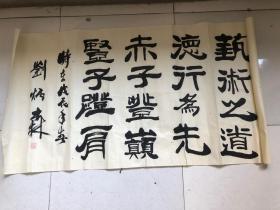 藝術之道
德行為先
赤子登巔
豎子蹬肩
時在戊戌年
劉炳森